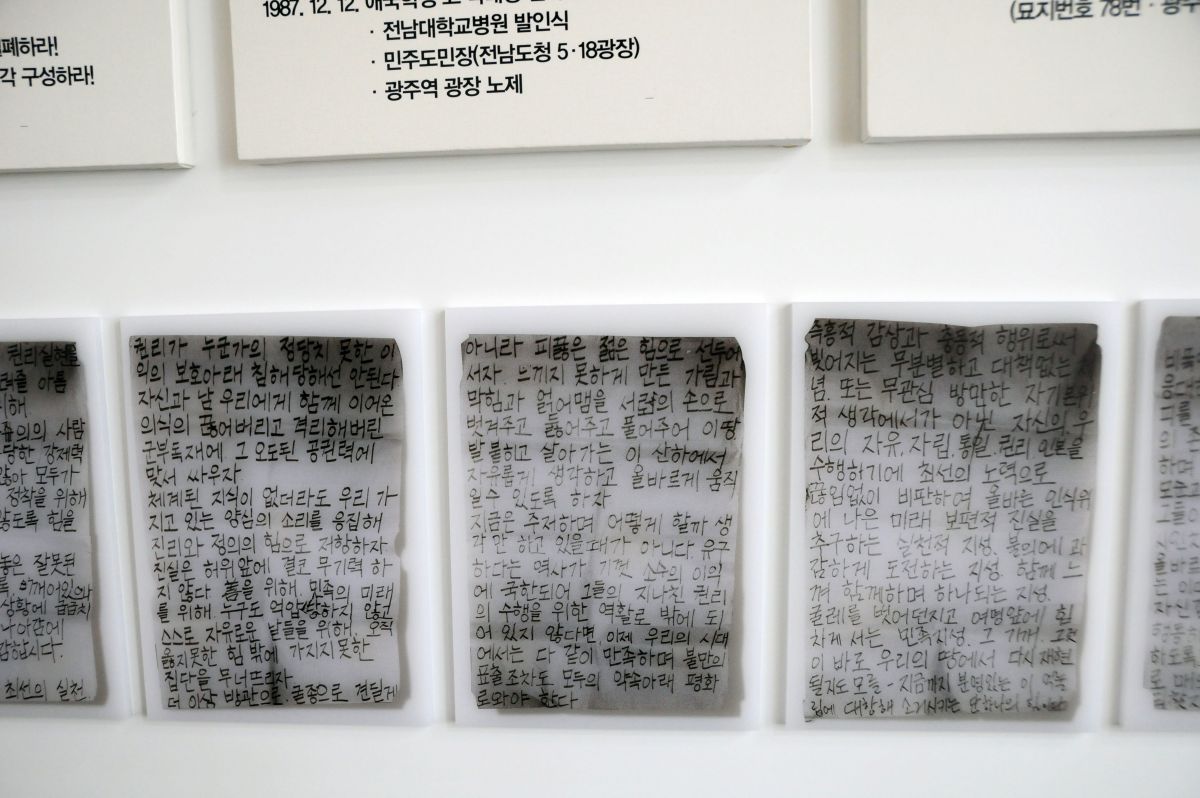 폐하라!
각 구성하라!
1987. 12. 12.
· 전남대학교병원 발인식
· 민주도민장(전남도청 5·18광장)
· 광주역 광장 노제
(묘지번호 78번 · 광주
권리실현를
려줄 아픔
위해
의 사람
당한 강제력
않아 모두가
정착을 위해
않도록 힘을
놓은 잘못된
깨어있으나
상황에
나아간에
감합시다.
최선의 실천.
권리가 누군가의 정당치 못한 이
익의 보호아래 침해당해선 안된다
자신과 남 우리에게 함께 이어온
의식의 끓어버리고 격리해버린
군부독재에 그 오도된 공권력에
맞서 싸우자
체계된 지식이 없더라도 우리 가
지고 있는 양심의 소리를 응집해
진리와 정의의 힘으로 저항하자
진실은 허위앞에 결코 무기력 하
지 않다 위해. 민족의 미래
를 위해 누구도 억압 하지 않고
스스로 자유로운 날들을 위해. 오직
옳지못한 힘 밖에 가지지못한
집단을 무너뜨리자
더 이상 방관으로. 굴종으로 견딜게
아니라 피끓은 젊은 힘으로 선두에
서자. 뜨끼지 못하게 만든 가림과
막힘과 얽어맴을 서로의 손으로
벗겨주고 뚫어주고 풀어주어 이땅
발 딛고 살아가는 이 산하에서
자유롭게 생각하고 올바르게 움직
일수 있도록 하자
지금은 주저하며 어떻게 할까 생
각만 하고 있을때가 아니다. 유구
하다는 역사가 기껏 소수의 이익
에 국한되어 그들의 지나친 권리
의 수행을 위한 역활로 밖에 되
어 있지 않다면 이제 우리의 시대
에서는 다 같이 만족하며 불만의
표출조차도 모두의 약속아래 평화
로와야 한다
즉흥적 감상과 충동적 행위로써
빚어지는 무분별하고 대책없는
념. 또는 무관심 방만한 자기본위
적 생각에서가 아닌 자신의 우
리의 자유, 자립, 통일, 권리
수행하기에 최선의 노력으로
끊임없이 비판하여 올바른 인식위
에 나은 미래 보편적 진실을
추구하는 실천적 지성. 불의에 과
감하게 도전하는 지성. 함께 느
껴 함께하며 하나되는 지성.
굴레를 벗어던지고 여명앞에 힘
차게 서는 민족지성. 그 기개. 그것
이 바로 우리의 땅에서 다시 재현
될지도 모를 - 지금까지 분명있는 이
림에 대항해
비폭
를
의
하며
모든
자신
행동
하도록
로